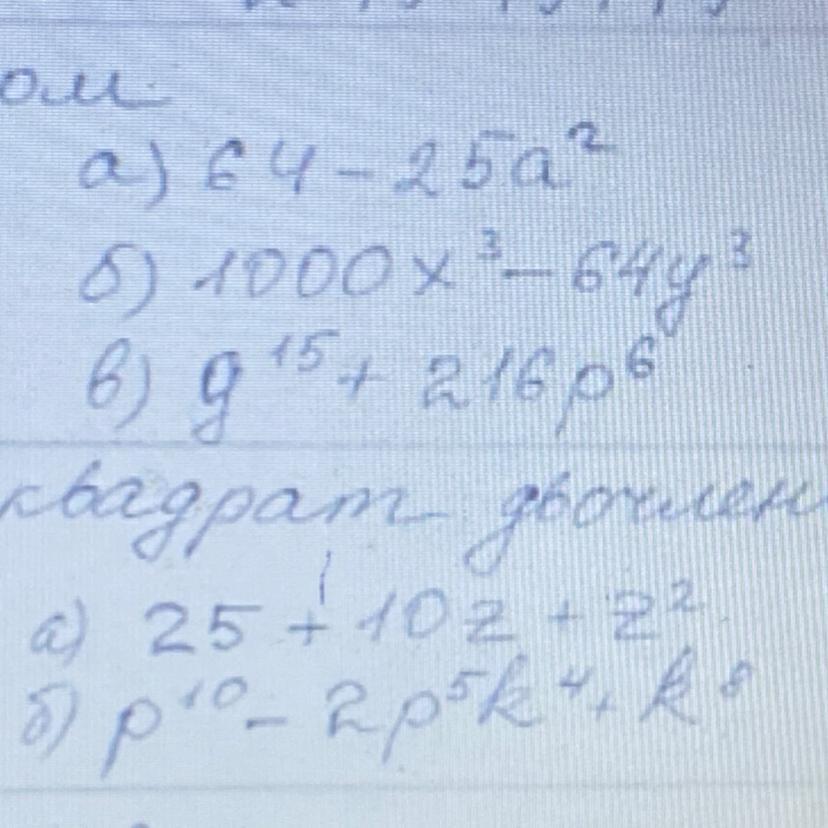 ом
а) 64 - 25a²
б) 1000x³ - 64y³
в) g¹⁵ + 216p⁶
квадрат двочлен
а) 25 + 10z + z²
б) p¹⁰ - 2p⁵k⁴ + k⁸